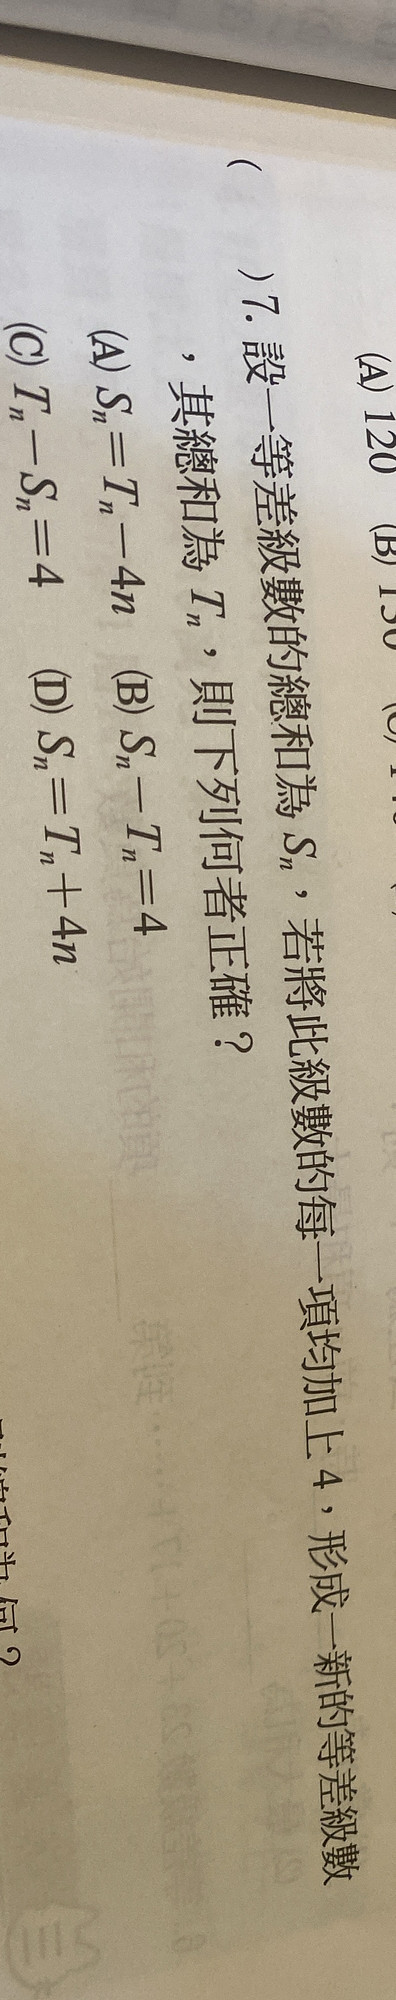 (A) 120 (B) 130
( )7. 設一等差級數的總和為 Sₙ，若將此級數的每一項均加上 4，形成一新的等差級數
，其總和為 Tₙ，則下列何者正確？
(A) Sₙ＝Tₙ－4n (B) Sₙ－Tₙ＝4
(C) Tₙ－Sₙ＝4 (D) Sₙ＝Tₙ＋4n